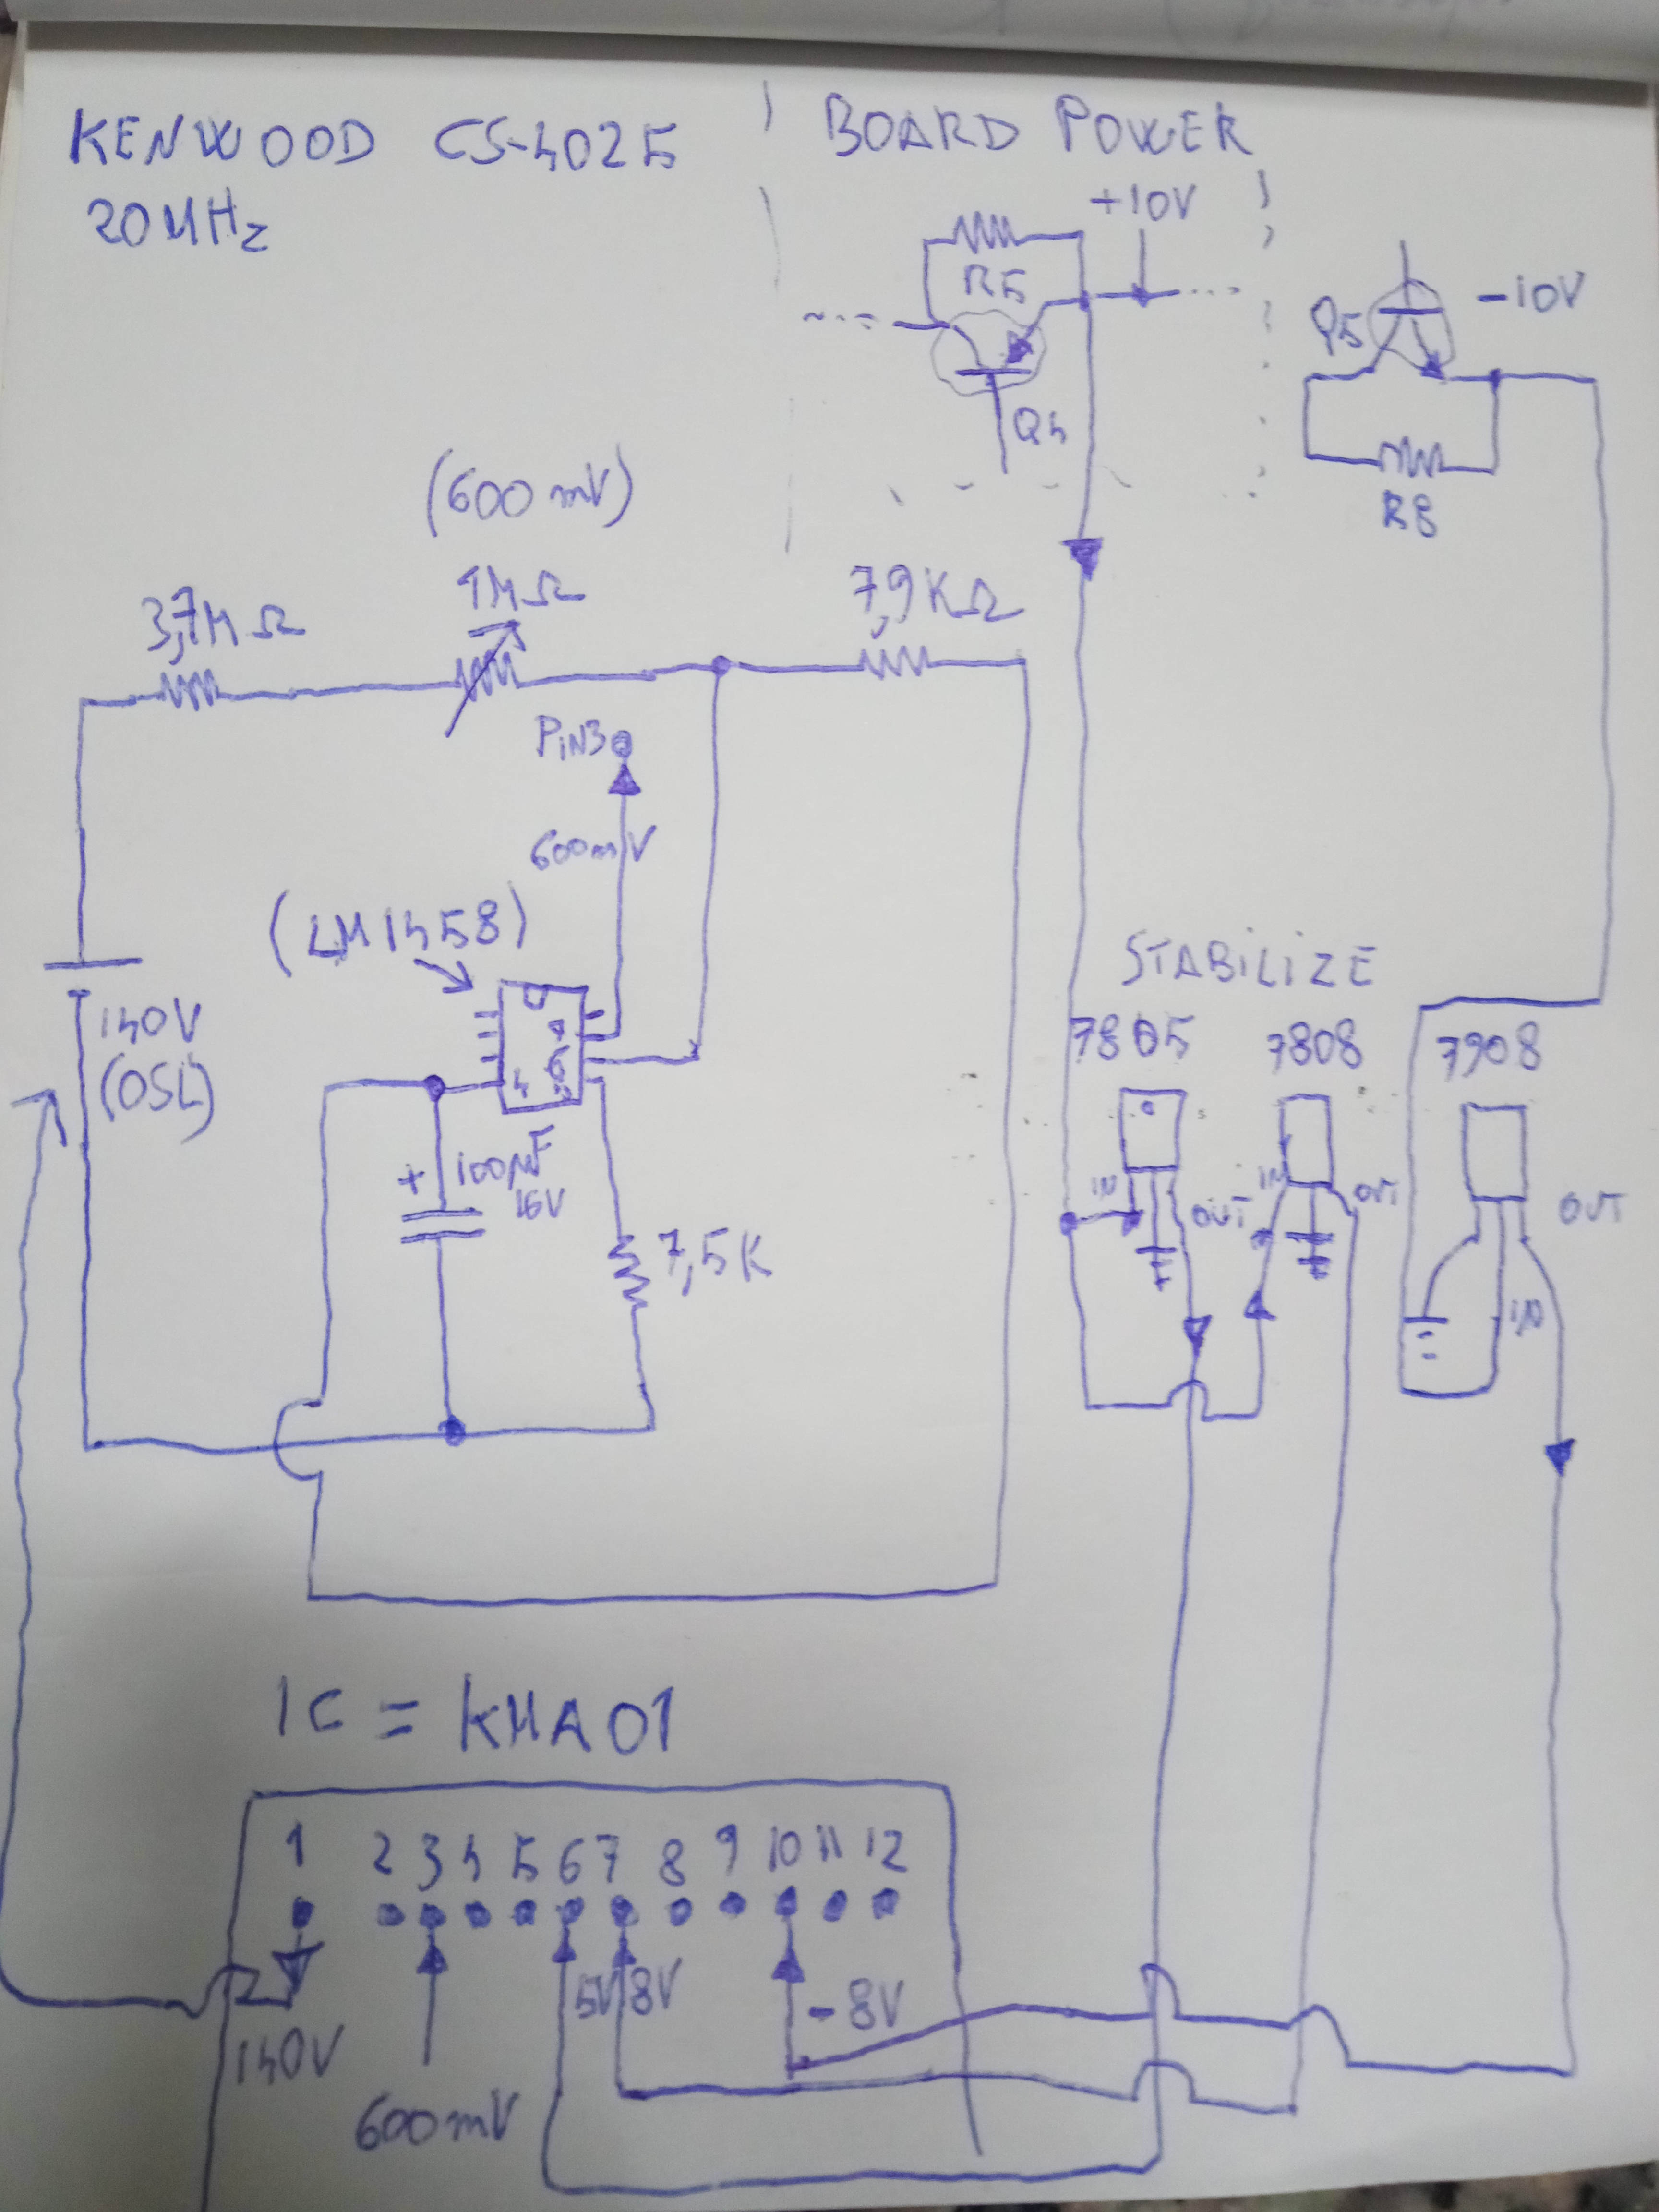 KENWOOD CS-4025
20MHz
BOARD POWER
+10V
R5
Q4
-10V
R8
(600mV)
3,7MΩ
1MΩ
7,9KΩ
PiN3
600mV
(LM1458)
6
4
140V
(OSL)
+
100µF
16V
7,5K
STABiLiZE
7805
7808
7908
IN
OUT
IN
OUT
IN
OUT
IC = KMA01
1 2 3 4 5 6 7 8 9 10 11 12
5V
8V
-8V
140V
600mV